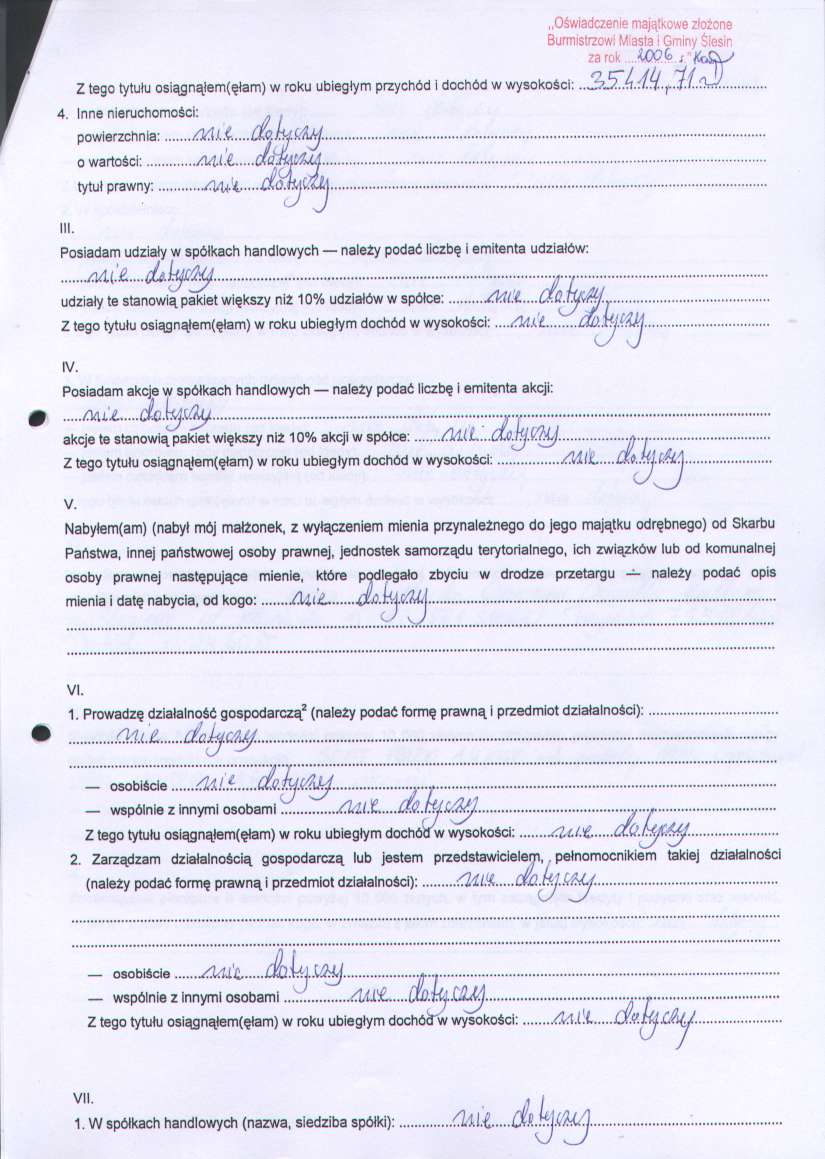 „Oświadczenie majątkowe złożone
Burmistrzowi Miasta i Gminy Ślesin
za rok ....2006 r."
Z tego tytułu osiągnąłem(ęłam) w roku ubiegłym przychód i dochód w wysokości: ...35414,71 zł
4. Inne nieruchomości:
powierzchnia: ......nie dotyczy
o wartości: ......nie dotyczy
tytuł prawny: ......nie dotyczy
III.
Posiadam udziały w spółkach handlowych — należy podać liczbę i emitenta udziałów:
......nie dotyczy
udziały te stanowią pakiet większy niż 10% udziałów w spółce: ......nie dotyczy
Z tego tytułu osiągnąłem(ęłam) w roku ubiegłym dochód w wysokości: ......nie dotyczy
IV.
Posiadam akcje w spółkach handlowych — należy podać liczbę i emitenta akcji:
......nie dotyczy
akcje te stanowią pakiet większy niż 10% akcji w spółce: ......nie dotyczy
Z tego tytułu osiągnąłem(ęłam) w roku ubiegłym dochód w wysokości: ......nie dotyczy
V.
Nabyłem(am) (nabył mój małżonek, z wyłączeniem mienia przynależnego do jego majątku odrębnego) od Skarbu
Państwa, innej państwowej osoby prawnej, jednostek samorządu terytorialnego, ich związków lub od komunalnej
osoby prawnej następujące mienie, które podlegało zbyciu w drodze przetargu — należy podać opis
mienia i datę nabycia, od kogo: ......nie dotyczy
VI.
1. Prowadzę działalność gospodarczą² (należy podać formę prawną i przedmiot działalności): ......
......nie dotyczy
— osobiście ......nie dotyczy
— wspólnie z innymi osobami ......nie dotyczy
Z tego tytułu osiągnąłem(ęłam) w roku ubiegłym dochód w wysokości: ......nie dotyczy
2. Zarządzam działalnością gospodarczą lub jestem przedstawicielem, pełnomocnikiem takiej działalności
(należy podać formę prawną i przedmiot działalności): ......nie dotyczy
— osobiście ......nie dotyczy
— wspólnie z innymi osobami ......nie dotyczy
Z tego tytułu osiągnąłem(ęłam) w roku ubiegłym dochód w wysokości: ......nie dotyczy
VII.
1. W spółkach handlowych (nazwa, siedziba spółki): ......nie dotyczy